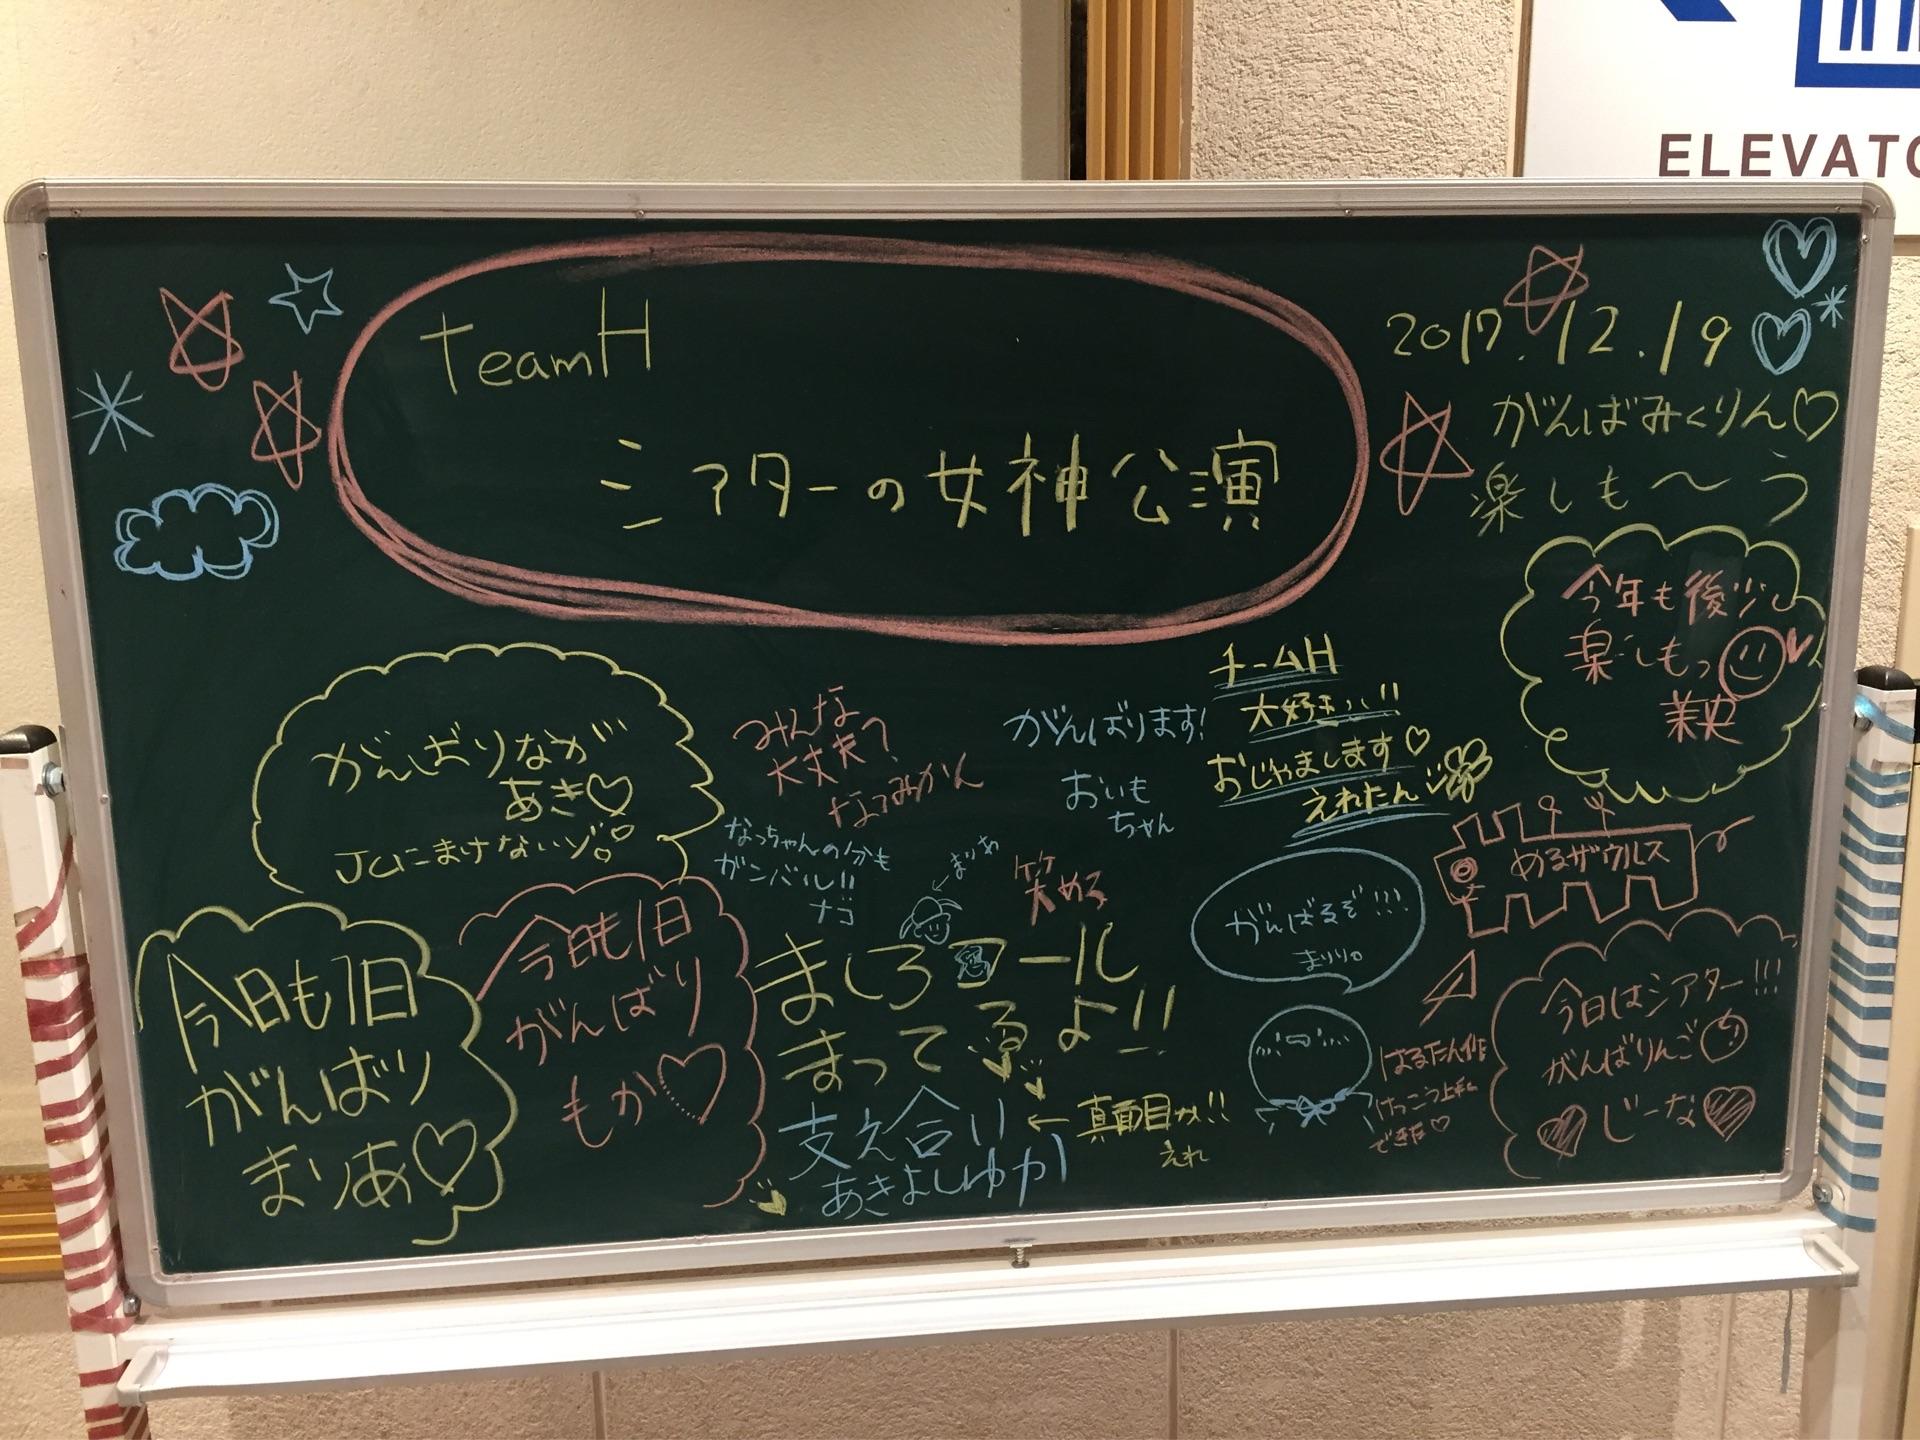 ELEVATO
TeamH
シアターの女神公演
2017.12.19
がんばみくりん♡
楽しも〜う
今年も後少し
楽しもっ
美央
がんばりなが
あき♡
JCにまけないゾ。
みんな
大丈夫?
なつみかん
なっちゃんの分も
ガンバル!!
ナゴ
がんばります!
おいも
ちゃん
チームH
大好き!!
おじゃまします♡
えれたん
めるザウルス
←まりあ
笑 める
がんばるぞ!!!
まりり。
今日も1日
がんばり
まりあ♡
今日も1日
がんばり
もか♡
ましろコール
まってるよ!!
支え合い
あきよしゆか
←真面目か!!
えれ
はるたん作
けっこう上手く
できた♡
今日はシアター!!!
がんばりんご
♡じーな♡